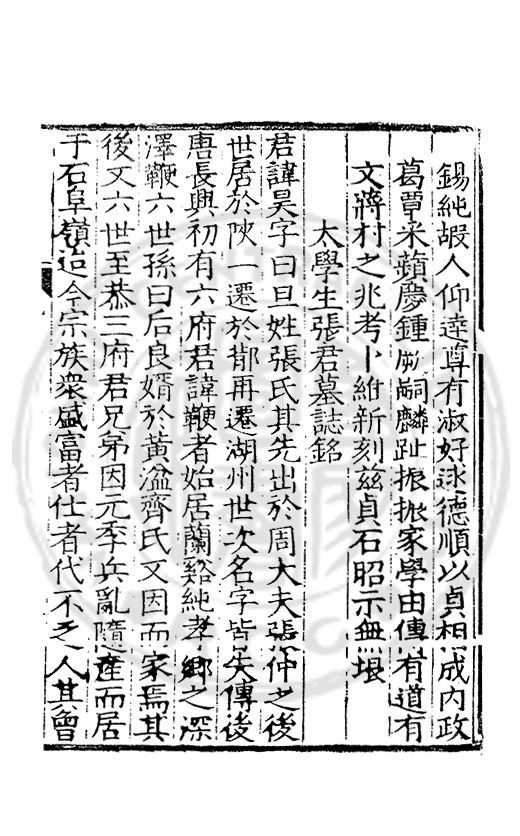 錫純嘏人仰達尊有淑好逑德順以貞相成内政
葛覃采蘋慶鍾厥嗣麟趾振振家學由傳有道有
文蔣村之兆考卜維新刻兹貞石昭示無垠
太學生張君墓誌銘
君諱昊字曰旦姓張氏其先出於周大夫張仲之後
世居於陜一遷於鄁再遷湖州世次名字皆失傳後
唐長興初有六府君諱鞭者始居蘭谿純孝鄉之深
澤鞭六世孫曰后良婿於黄湓齊氏又因而家焉其
後又六世至恭三府君兄弟因元季兵亂隨産而居
于石阜嶺迨今宗族衆盛富者仕者代不乏人其曾